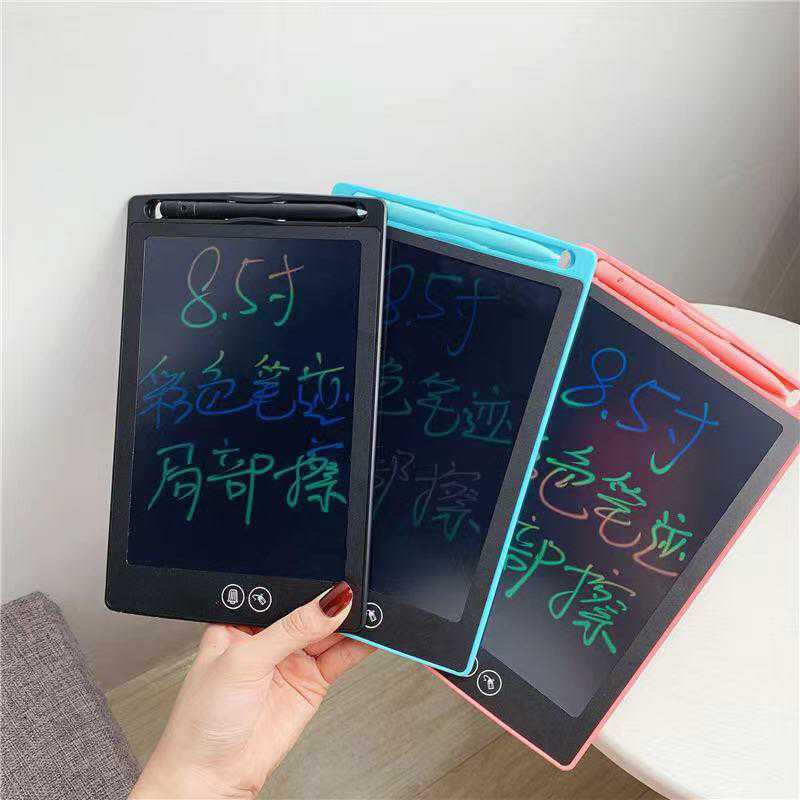 8.5寸
彩色笔迹
局部擦
8.5寸
色笔迹
部擦
8.5寸
色笔迹
部擦